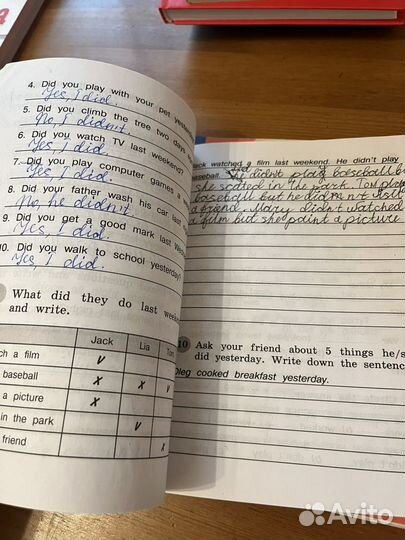 4. Did you play with your pet yesterday
Yes, I did.
5. Did you climb the tree two days
No, I didn't.
6. Did you watch TV last weekend?
Yes, I did.
7. Did you play computer games a
Yes, I did.
8. Did your father wash his car last
No, he didn't.
9. Did you get a good mark last We
Yes, I did.
10. Did you walk to school yesterday?
Yes, I did.
What did they do last weeke
and write.
Jack Lia Tom
ch a film v
baseball x x v
a picture x
in the park v
friend x
ack watched a film last weekend. He didn't play
baseball. didn't play baseball bu
she in the park. Tom play
baseball but he didn't visit
a friend. Mary didn't watched
a film but she paint a picture
10 Ask your friend about 5 things he/s
did yesterday. Write down the sentenc
Oleg cooked breakfast yesterday.
Avito